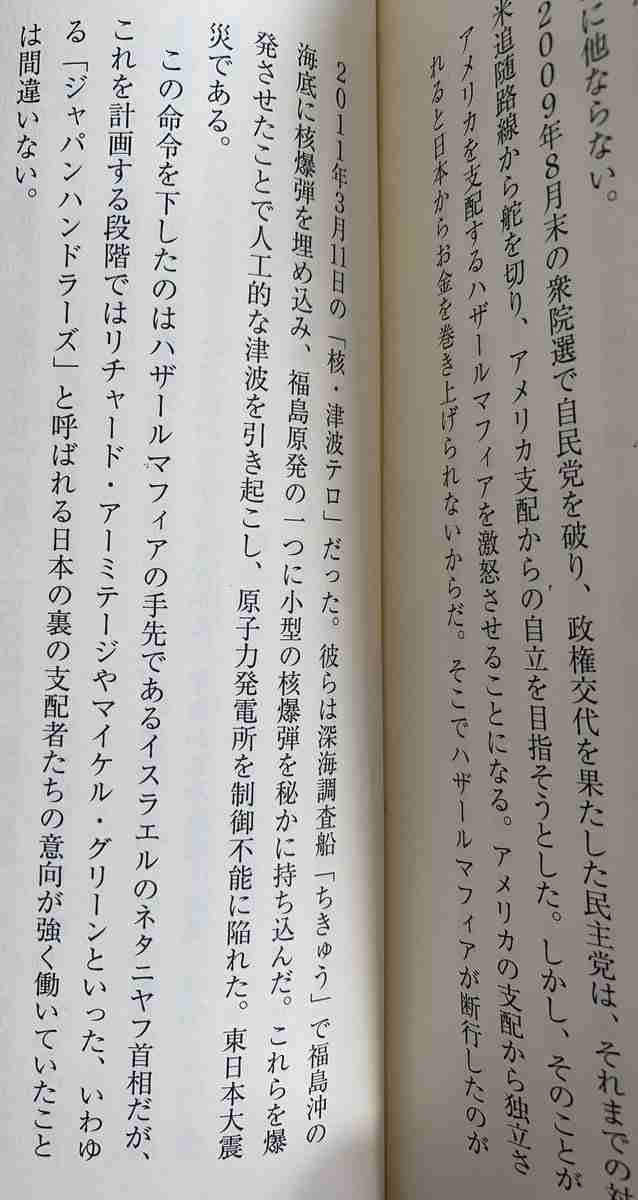 に他ならない。
2009年8月末の衆院選で自民党を破り、政権交代を果たした民主党は、それまでの対
米追随路線から舵を切り、アメリカ支配からの自立を目指そうとした。しかし、そのことが
アメリカを支配するハザールマフィアを激怒させることになる。アメリカの支配から独立さ
れると日本からお金を巻き上げられないからだ。そこでハザールマフィアが断行したのが
2011年3月11日の「核・津波テロ」だった。彼らは深海調査船「ちきゅう」で福島沖の
海底に核爆弾を埋め込み、福島原発の一つに小型の核爆弾を秘かに持ち込んだ。これらを爆
発させたことで人工的な津波を引き起こし、原子力発電所を制御不能に陥れた。東日本大震
災である。
この命令を下したのはハザールマフィアの手先であるイスラエルのネタニヤフ首相だが、
これを計画する段階ではリチャード・アーミテージやマイケル・グリーンといった、いわゆ
る「ジャパンハンドラーズ」と呼ばれる日本の裏の支配者たちの意向が強く働いていたこと
は間違いない。